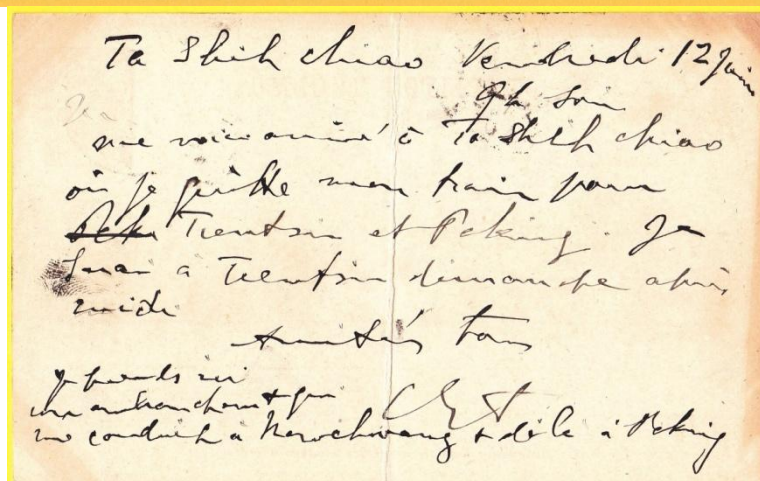 Ta Shih chiao Vendredi 12 Juin
9h soir
me voici arrivé à Ta Shih chiao
où je quitte mon train pour
Pek Tientsin et Peking. Je
serai a Tientsin dimanche après
midi
Amitiés tous
je prends ici
un embranchemt qui
me conduit à Newchwang & de là à Peking